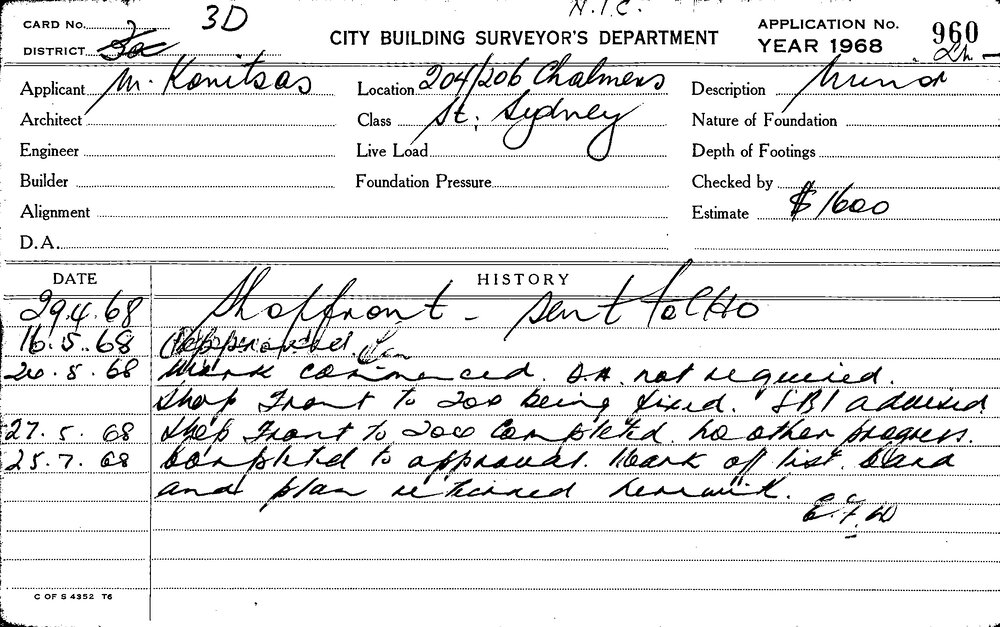 N.I.C.
CARD No. 3D
CITY BUILDING SURVEYOR'S DEPARTMENT
APPLICATION No. 960
YEAR 1968
DISTRICT
Applicant M. Konitsas
Location 204/206 Chalmers
Description Minor
Architect
Class St. Sydney
Nature of Foundation
Engineer
Live Load
Depth of Footings
Builder
Foundation Pressure
Checked by
Alignment
Estimate $1600
D.A.
DATE HISTORY
29.4.68 Shopfront - sent to CHO
16.5.68 Approved.
20.5.68 Work commenced. D.A. not required.
Shop Front to 200 being fixed. SBI advised
27.5.68 Shop Front to 200 completed. No other progress.
25.7.68 Completed to approval. Mark off list. Card
and plan returned herewith.
E.F.W
C OF S 4352 T6